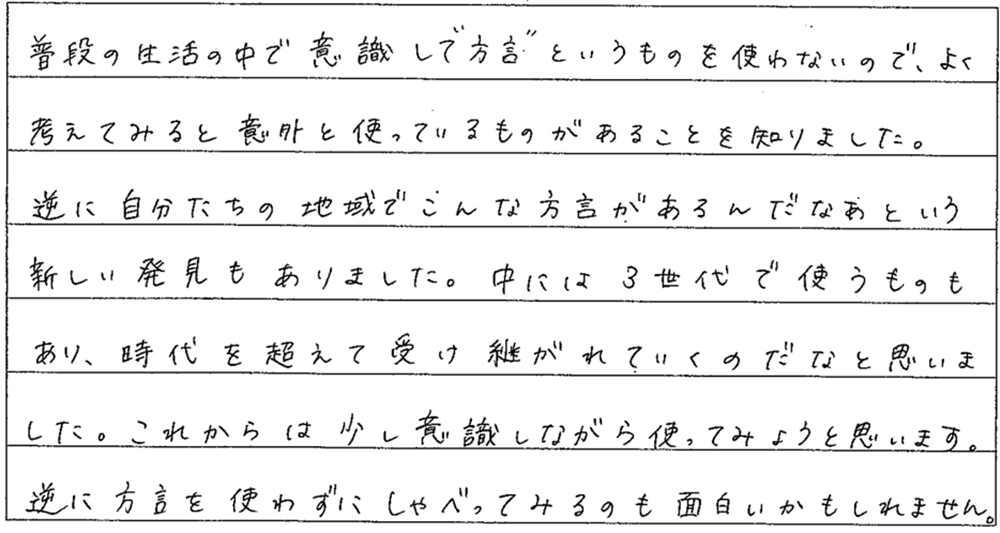 普段の生活の中で意識して“方言”というものを使わないので、よく
考えてみると意外と使っているものがあることを知りました。
逆に自分たちの地域でこんな方言があるんだなあという
新しい発見もありました。中には3世代で使うものも
あり、時代を超えて受け継がれていくのだなと思いま
した。これからは少し意識しながら使ってみようと思います。
逆に方言を使わずにしゃべってみるのも面白いかもしれません。